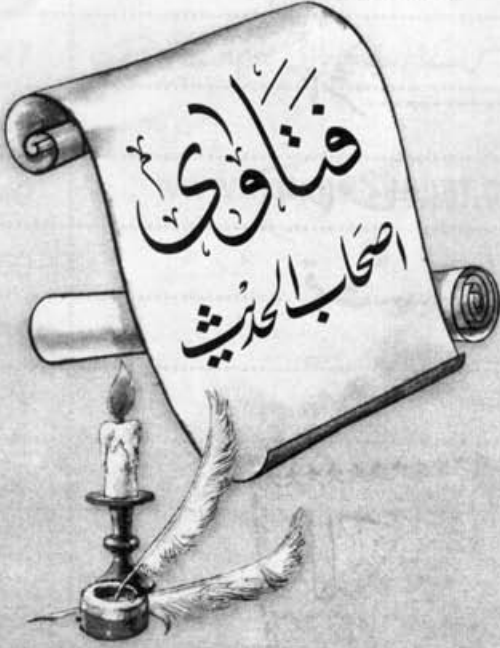 فتاوی
اصحاب الحدیث